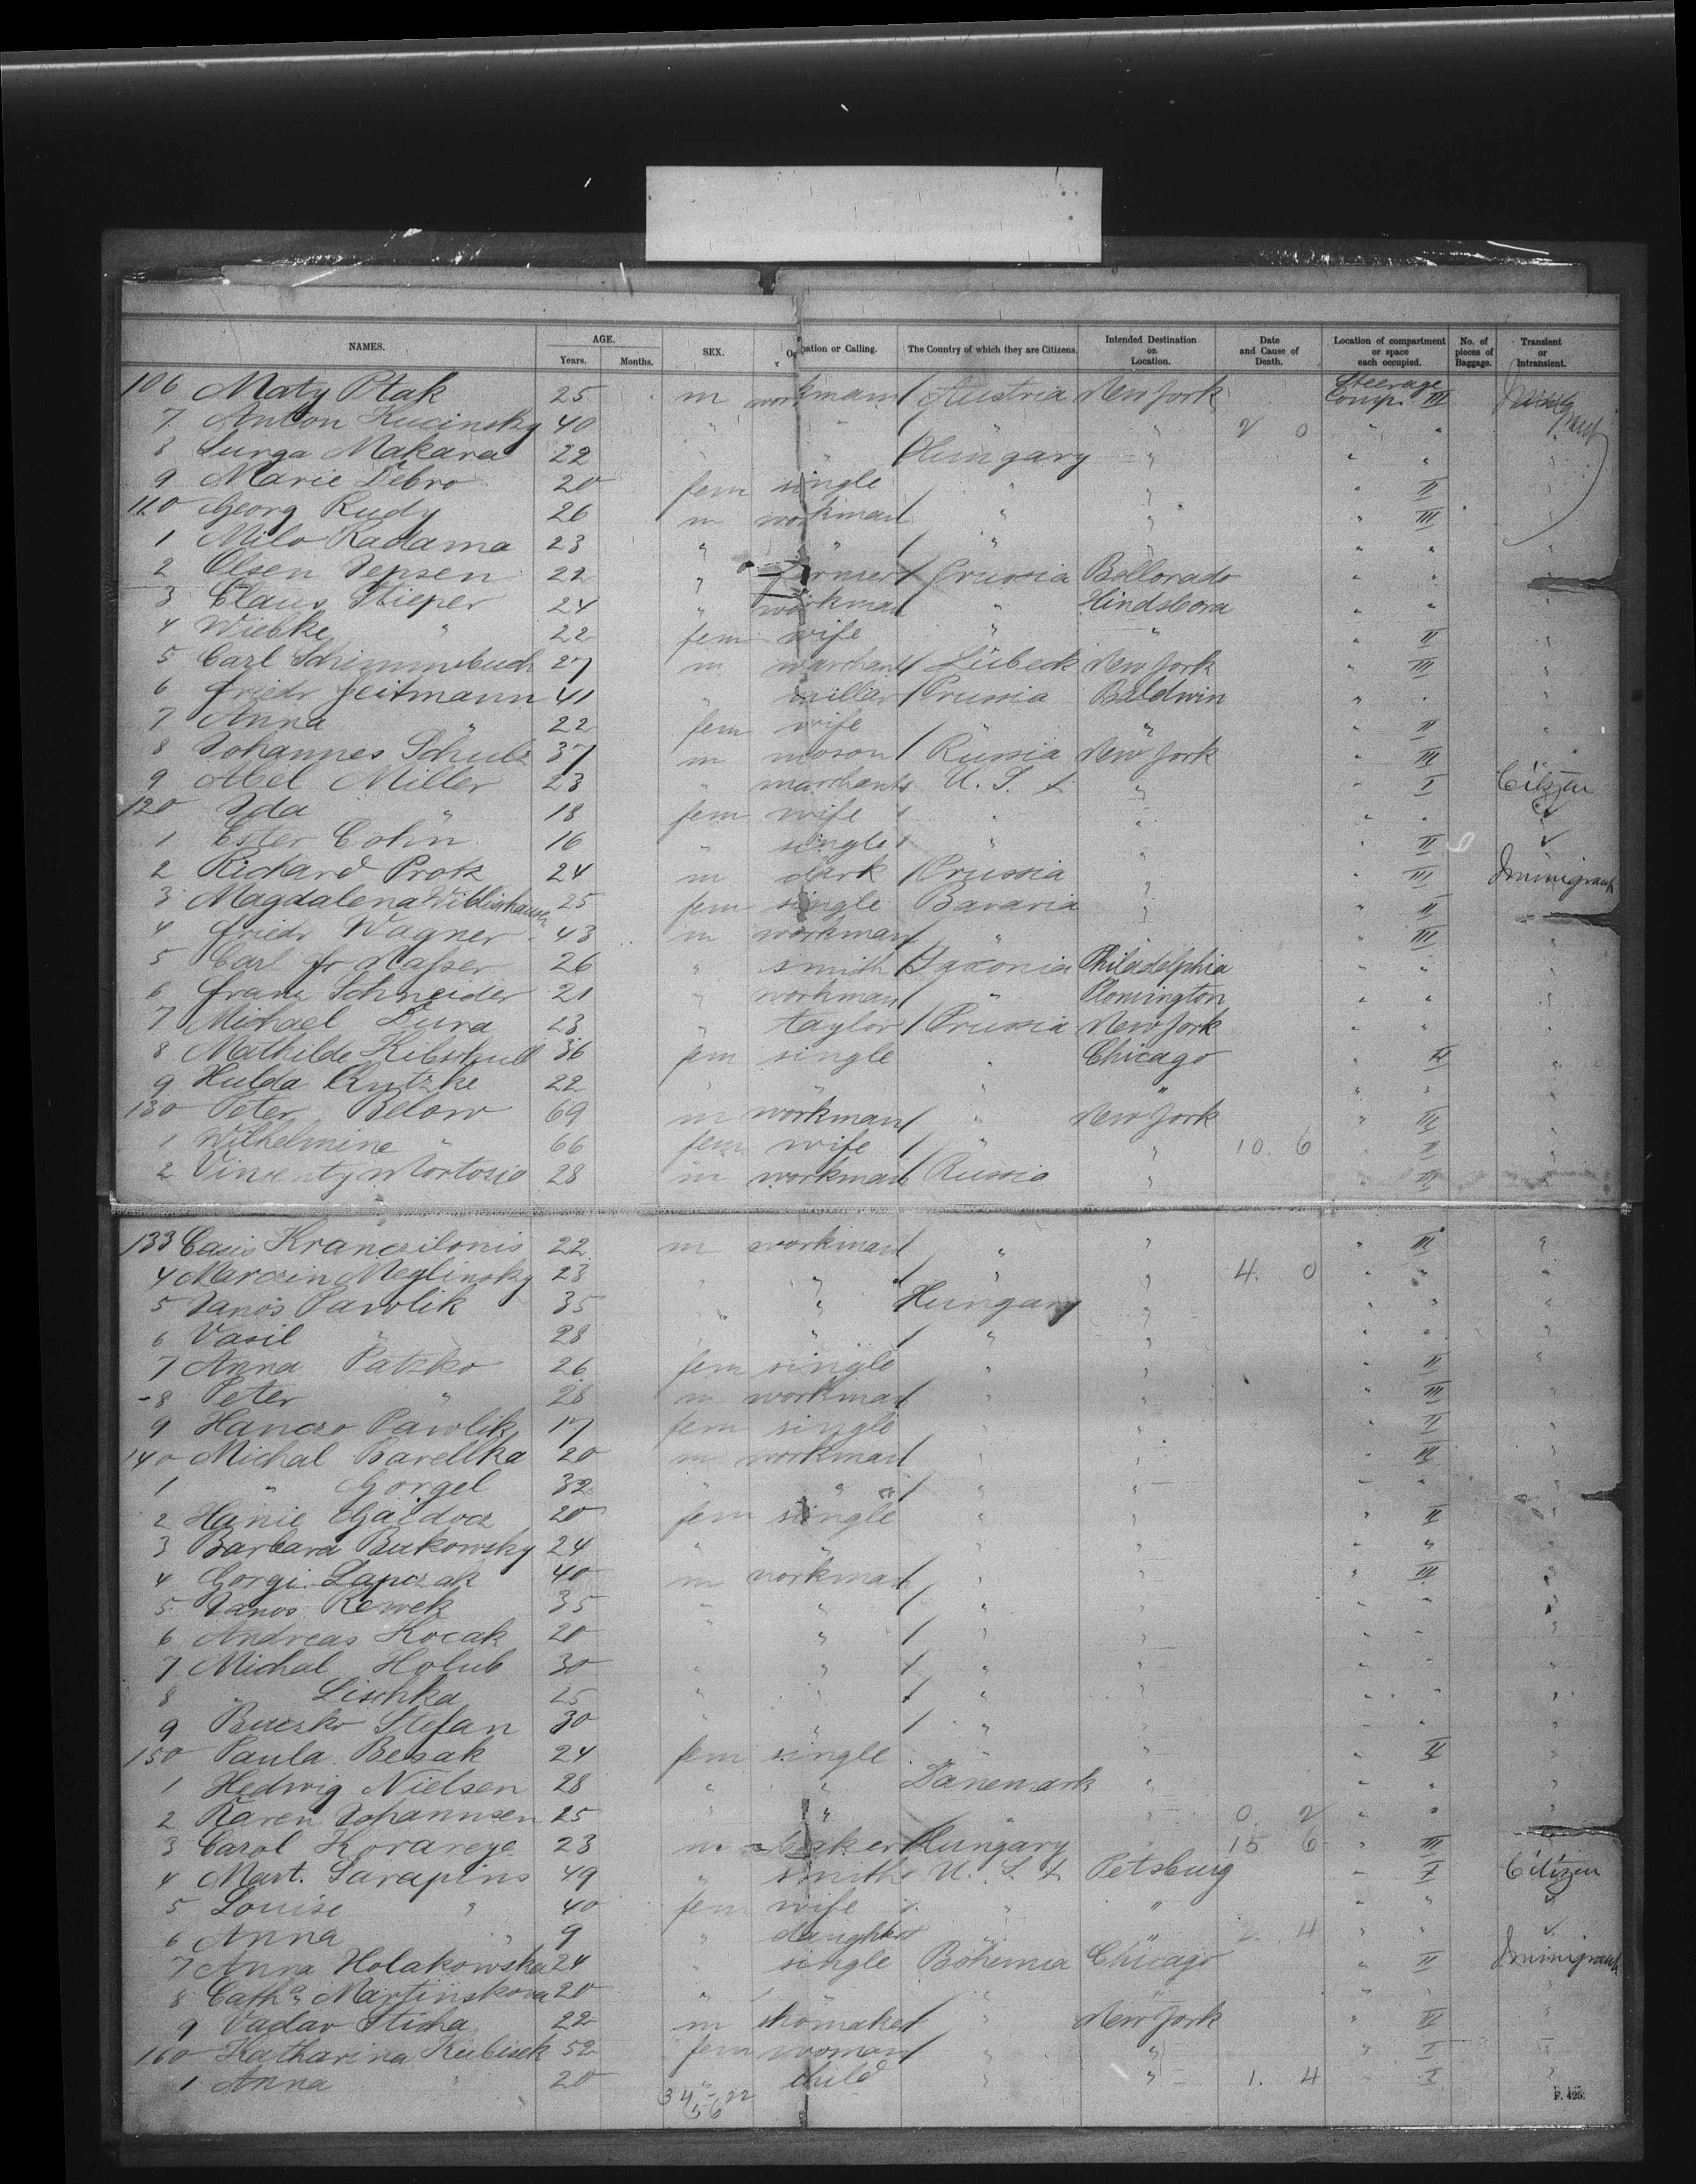 NAMES. AGE. Years. Months. SEX. Occupation or Calling. The Country of which they are Citizens. Intended Destination on Location. Date and Cause of Death. Location of compartment or space each occupied. No. of pieces of Baggage. Transient or Intransient.
106 Maty Ptak 25 m workman / Austria New York Steerage Comp. III
7 Anton Kucinsky 40 " " / " " 2 0 " "
8 Surga Makara 22 " " Hungary " " "
9 Marie Debro 20 fem single " " " II
110 Georg Rudy 26 m workman " " " III
1 Milo Radama 23 " " / " " " "
2 Olsen Jepsen 22 " farmer / Prussia Bollorado " "
3 Claus Stieper 24 " workman " Hindsbora " "
4 Wiebke " 22 fem wife " " " II
5 Carl Schimmbuch 27 m marchant / Lübeck New York " III
6 Friedr Jeitmann 41 " millar / Prussia Baldwin " "
7 Anna " 22 fem wife " " II
8 Johannes Schulz 37 m moson / Russia New York " III
9 Abel Miller 23 " marchant U. S. " " I Citizen
120 Ida " 18 fem wife " " " "
1 Ester Cohn 16 " single " " " II
2 Richard Protz 24 m clark / Prussia " " III Immigrant
3 Magdalena 25 fem single Bavaria " " II
4 Friedr Wagner 43 m workman " " " III
5 Carl Fr Nasser 26 " smith / Saxonia Philadelphia " "
6 Franz Schneider 21 " workman " Plomington " "
7 Michael Dura 23 " taylor / Prussia New York " "
8 Mathilde Kibschull 36 fem single " Chicago " II
9 Hulda Rutzke 22 " " " " " "
130 Peter Below 69 m workman / " New York " III
1 Wilhelmine " 66 fem wife / " " 10. 6 " II
2 Vincenty Mortosio 28 m workman / Russia " " III
133 Casis Kranczilonis 22 m workman / " " " III
4 Marczin Meglinsky 23 " " / " " 4. 0 " "
5 Janos Pawlik 35 " " Hungary " " "
6 Vasil " 28 " " / " " " "
7 Anna Patzko 26 fem single " " " II
8 Peter " 28 m workman " " " III
9 Hanczo Pawlik 17 fem single " " " II
140 Michal Barellka 20 m workman " " " III
1 " Gorgel 32 " " / " " " "
2 Hanie Gaidocz 20 fem single " " " II
3 Barbara Bukowsky 24 " " " " " "
4 Gorgi Lapczak 40 m workman / " " " III
5 Janos Rewek 35 " " / " " " "
6 Andreas Kocak 20 " " / " " " "
7 Michal Holub 30 " " / " " " "
8 " Lischka 25 " " / " " " "
9 Buczko Stefan 30 " " / " " " "
150 Paula Besak 24 fem single " " " II
1 Hedwig Nielsen 28 " " Danemark " " "
2 Karen Johannsen 25 " " " " 0. 2 " "
3 Carol Korareye 23 m baker / Hungary " 15 6 " III
4 Mart. Sarapins 49 " smith U. S. Petsburg " I Citizen
5 Louise " 40 fem wife " " " "
6 Anna " 9 " daughter " " 2. 4 " "
7 Anna Holakowska 24 " single Bohemia Chicago " II Immigrant
8 Cath. Martinskova 20 " " " " " "
9 Vaclav Sticha 22 m shomaker / " New York " III
160 Katharina Kubisek 52 fem woman " " " I
1 Anna " 20 " child " " 1. 4 " I
34 - 22
56
F. 425.